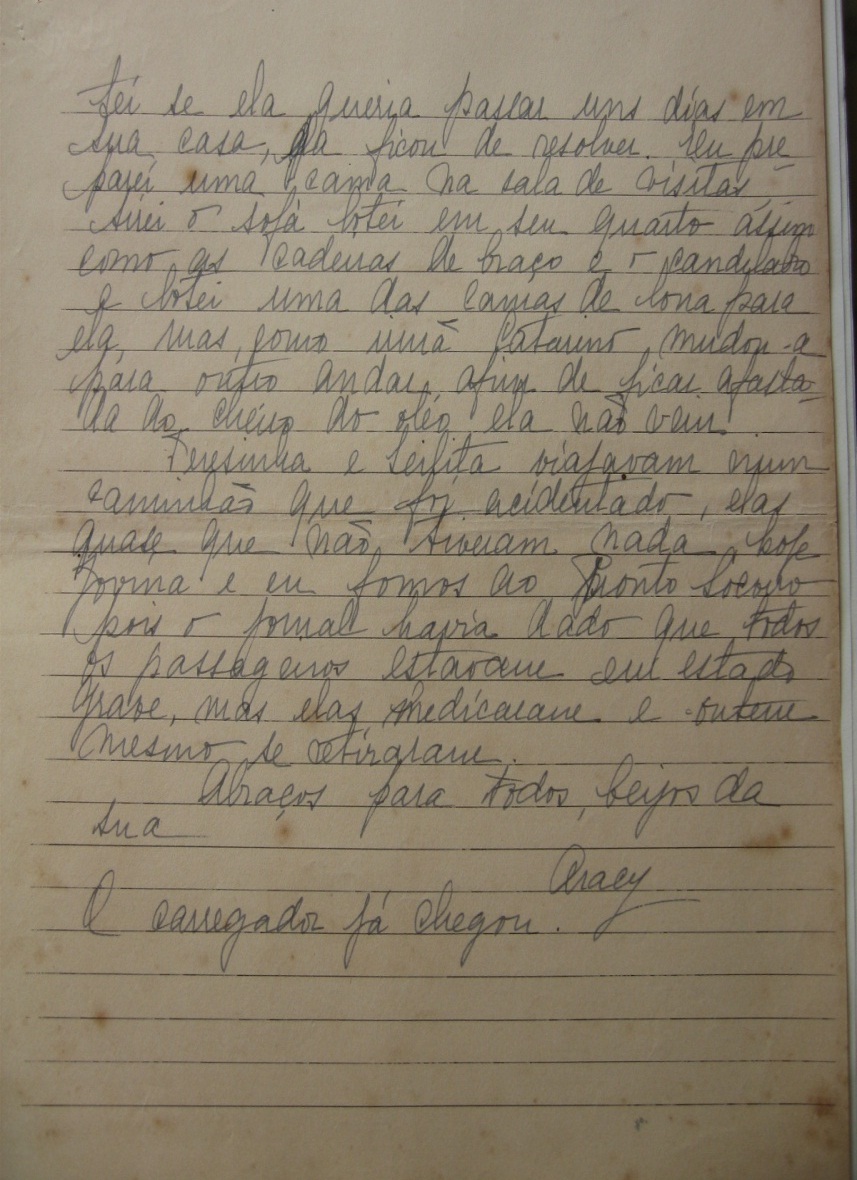 tei se ela queria passar uns dias em
sua casa, ela ficou de resolver. Eu pre
parei uma cama na sala de visitas
tirei o sofá botei em seu quarto assim
como as cadeiras de braço e o candelabro
e botei uma das camas de lona para
ela, mas, como irmã Catarino mudou-a
para outro andar, afim de ficar afasta-
da do cheiro do oléo ela não veiu.
Teresinha e viajavam num
caminhão que foi acidentado, elas
quase que não tiveram nada, hoje
Jovina e eu fomos ao Pronto Socorro
pois o jornal havia dado que todos
os passageiros estavam em estado
grave, mas elas medicaram e ontem
mesmo se retiraram.
Abraços para todos, beijos da
sua
Aracy
O carregador já chegou.